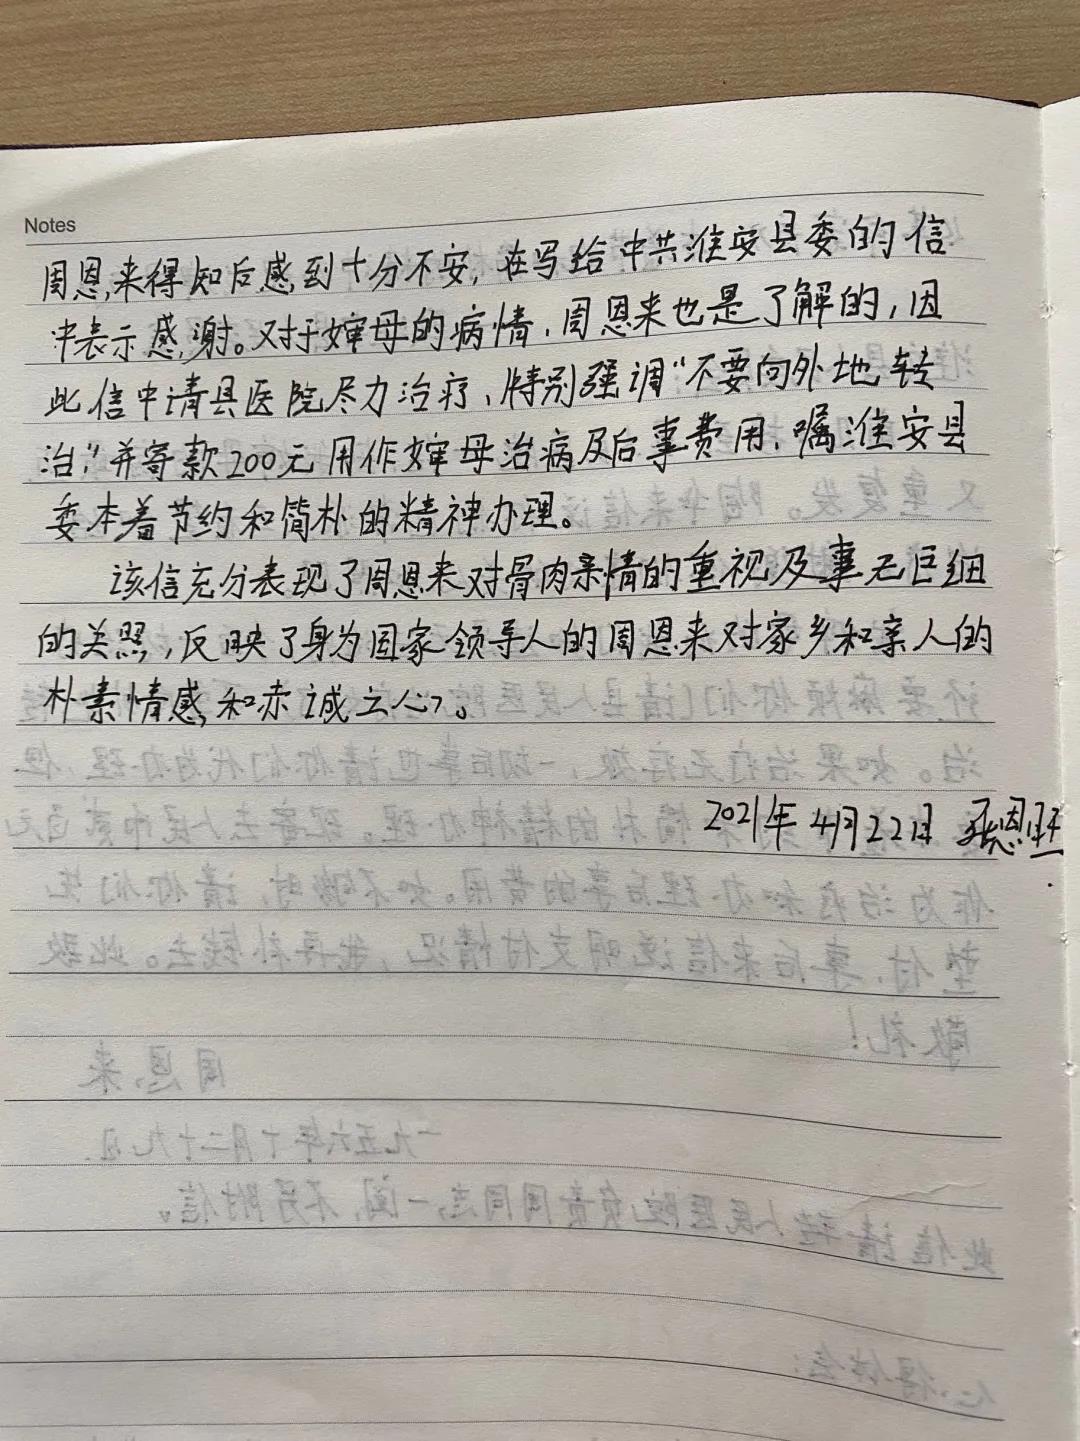 Notes
周恩来得知后感到十分不安，在写给中共淮安县委的信
中表示感谢。对于婶母的病情，周恩来也是了解的，因
此信中请县医院尽力治疗，特别强调“不要向外地转
治”，并寄款200元用作婶母治病及后事费用，嘱淮安县
委本着节约和简朴的精神办理。
该信充分表现了周恩来对骨肉亲情的重视及事无巨细
的关照，反映了身为国家领导人的周恩来对家乡和亲人的
朴素情感和赤诚之心。
2021年4月22日 张恩旺